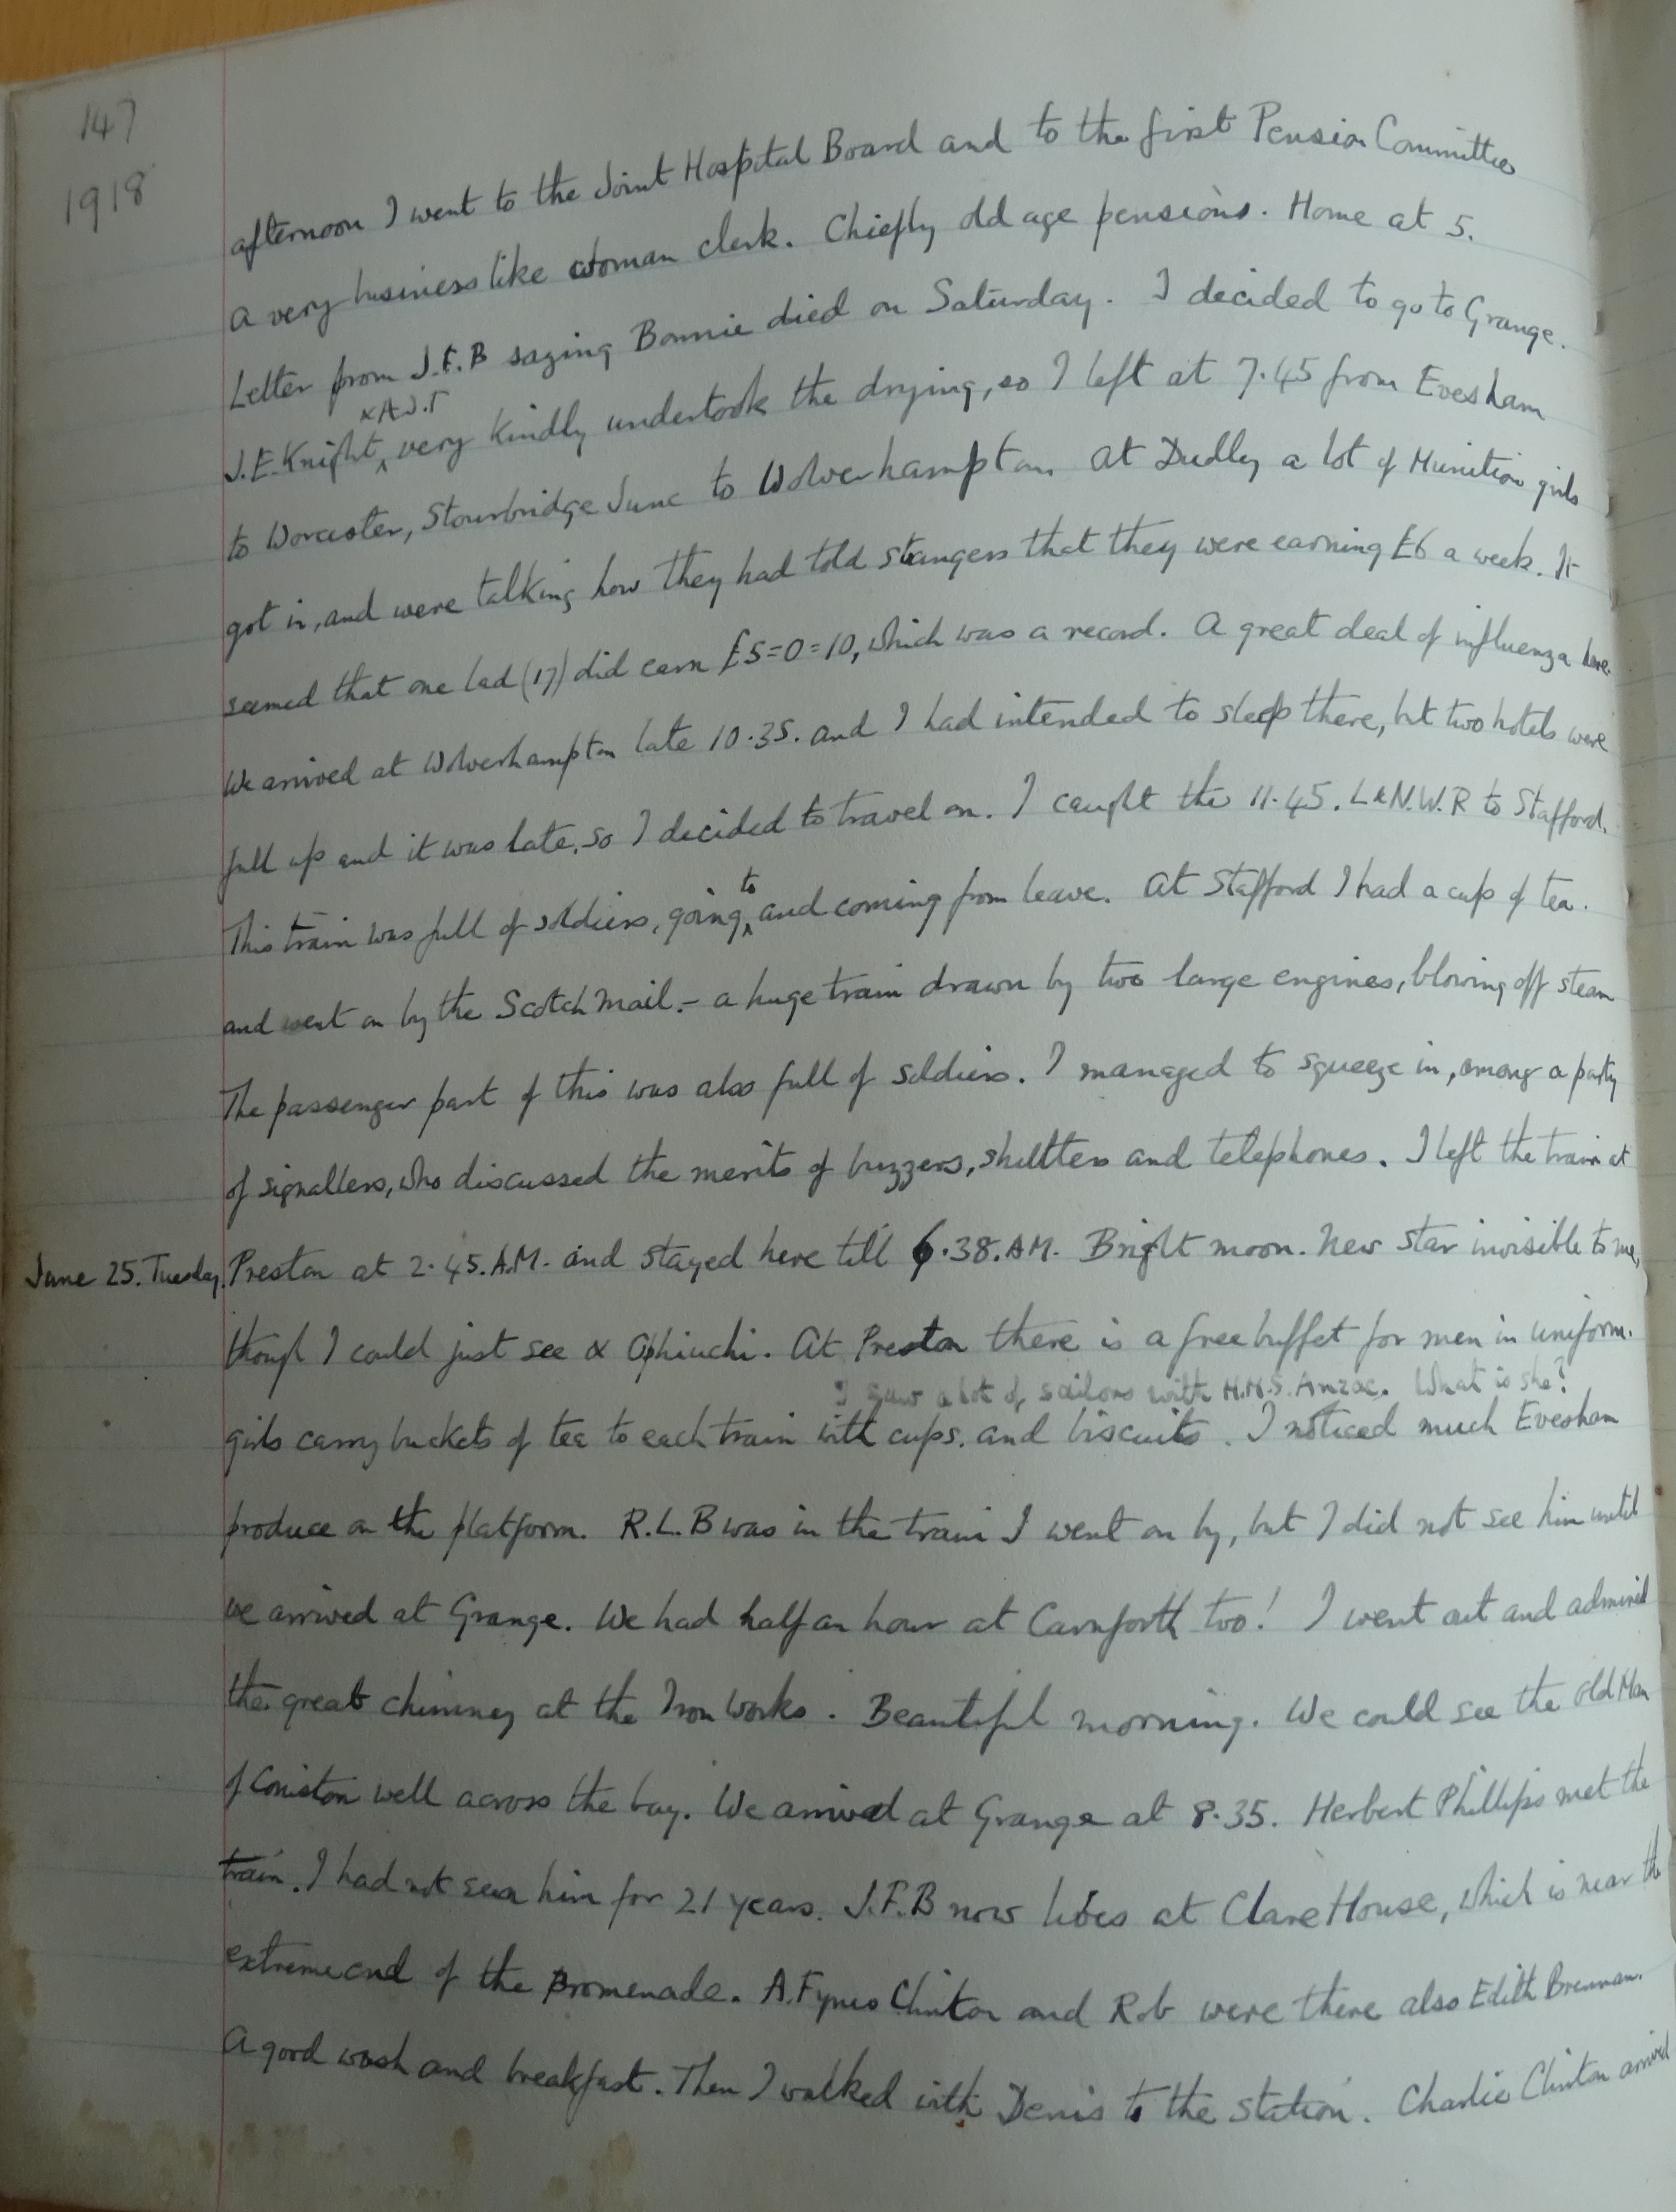 147
1918
afternoon I went to the Joint Hospital Board and to the first Pension Committee
a very business like woman clerk. Chiefly old age pensions. Home at 5.
Letter from J.F.B saying Bonnie died on Saturday. I decided to go to Grange.
& A.J.T
J.E. Knight ‸ very kindly undertook the drying, so I left at 7.45 from Evesham
to Worcester, Stourbridge Junc to Wolverhampton. At Dudley a lot of Munition girls
got in, and were talking how they had told stangers that they were earning £6 a week. It
seemed that one lad (17) did earn £5=0=10, which was a record. A great deal of influenza here.
We arrived at Wolverhampton late 10.35. and I had intended to sleep there, but two hotels were
full up and it was late, so I decided to travel on. I caught the 11.45. L&N.W.R to Stafford.
to
This train was full of soldiers, going ‸ and coming from leave. At Stafford I had a cup of tea.
and went on by the Scotch Mail. – a huge train drawn by two large engines, blowing off steam
The passenger part of this was also full of soldiers. I managed to squeeze in, among a party
of signallers, who discussed the merits of buzzers, shuttters and telephones. I left the train at
June 25. Tuesday. Preston at 2.45. A.M. and stayed here till 6.38. AM. Bright moon. New star invisible to me,
though I could just see α Ophiuchi. At Preston there is a free buffet for men in uniform.
I saw a lot of sailors with H.M.S. Anzac. What is she?
girls carry buckets of tea to each train with cups. and biscuits. I noticed much Evesham
produce on the platform. R.L.B was in the train I went on by, but I did not see him until
we arrived at Grange. We had half an hour at Carnforth too! I went out and admired
the great chimney at the Iron Works. Beautiful morning. We could see the Old Man
of Coniston well across the bay. We arrived at Grange at 8.35. Herbert Phillips met the
train. I had not seen him for 21 years. J.F.B now lives at Clare House, which is near the
extreme end of the Promenade. A. Fynes Clinton and Rob were there also Edith Brennan.
A good wash and breakfast. Then I walked with Denis to the station. Charlie Clinton arrived